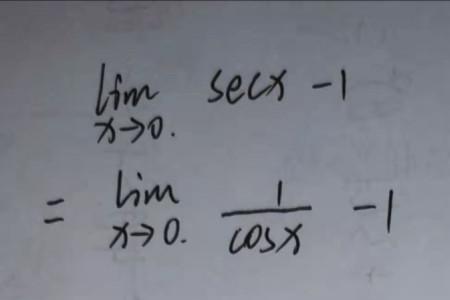 lim x→0. secx -1
= lim x→0. 1/cosx -1